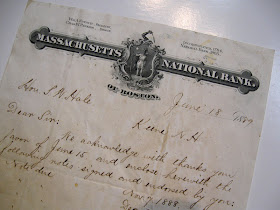 MASSACHUSETTS NATIONAL BANK.
OF BOSTON.
June 18 1889
Hon. S. W. Hale
Keene N. H.
Dear Sir:
We acknowledge with thanks your
favor of June 15, and enclose herewith the
following notes signed and endorsed by you:
Note due Nov. 7. 1888